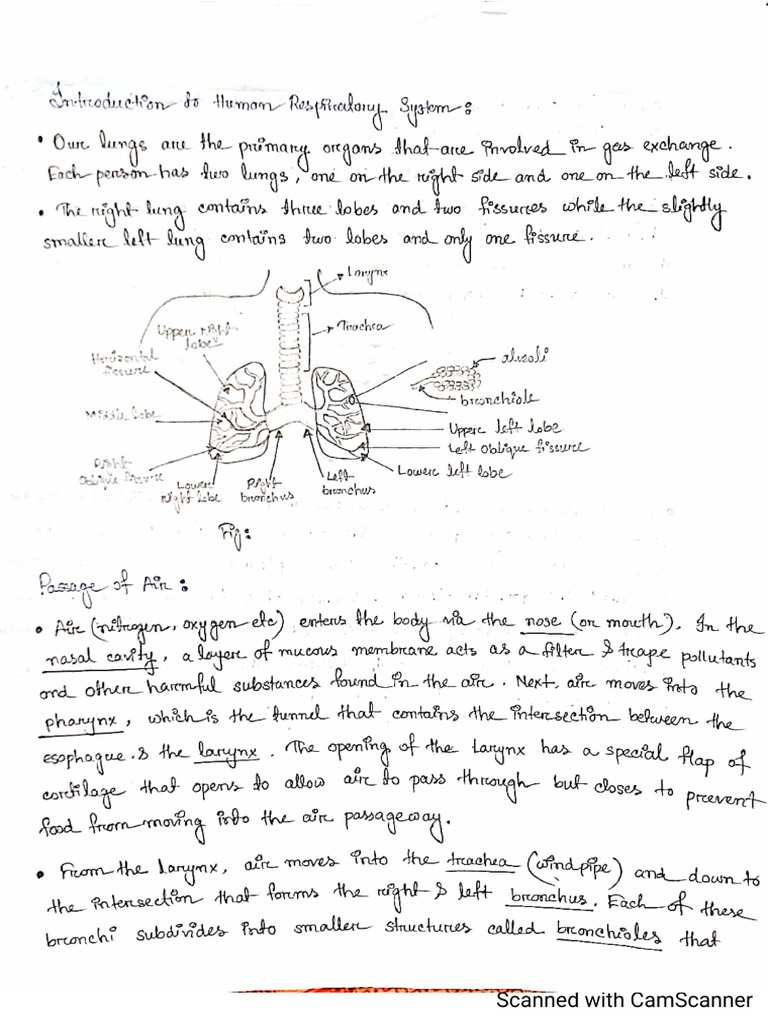 Introduction to Human Respiratory System:
• Our lungs are the primary organs that are involved in gas exchange.
Each person has two lungs, one on the right side and one on the left side.
• The right lung contains three lobes and two fissures while the slightly
smaller left lung contains two lobes and only one fissure.
Larynx
Trachea
Upper right
lobe
Horizontal
fissure
alveoli
bronchiole
Middle lobe
Upper left lobe
Left Oblique fissure
Lower left lobe
Right
Oblique fissure
Lower
right lobe
Right
bronchus
Left
bronchus
Fig:
Passage of Air:
• Air (nitrogen, oxygen etc) enters the body via the nose (or mouth). In the
nasal cavity, a layer of mucous membrane acts as a filter & traps pollutants
and other harmful substances found in the air. Next, air moves into the
pharynx, which is the tunnel that contains the intersection between the
esophague & the larynx. The opening of the larynx has a special flap of
cartilage that opens to allow air to pass through but closes to prevent
food from moving into the air passageway.
• From the larynx, air moves into the trachea (windpipe) and down to
the intersection that forms the right & left bronchus. Each of these
bronchi subdivides into smaller structures called bronchioles that
Scanned with CamScanner